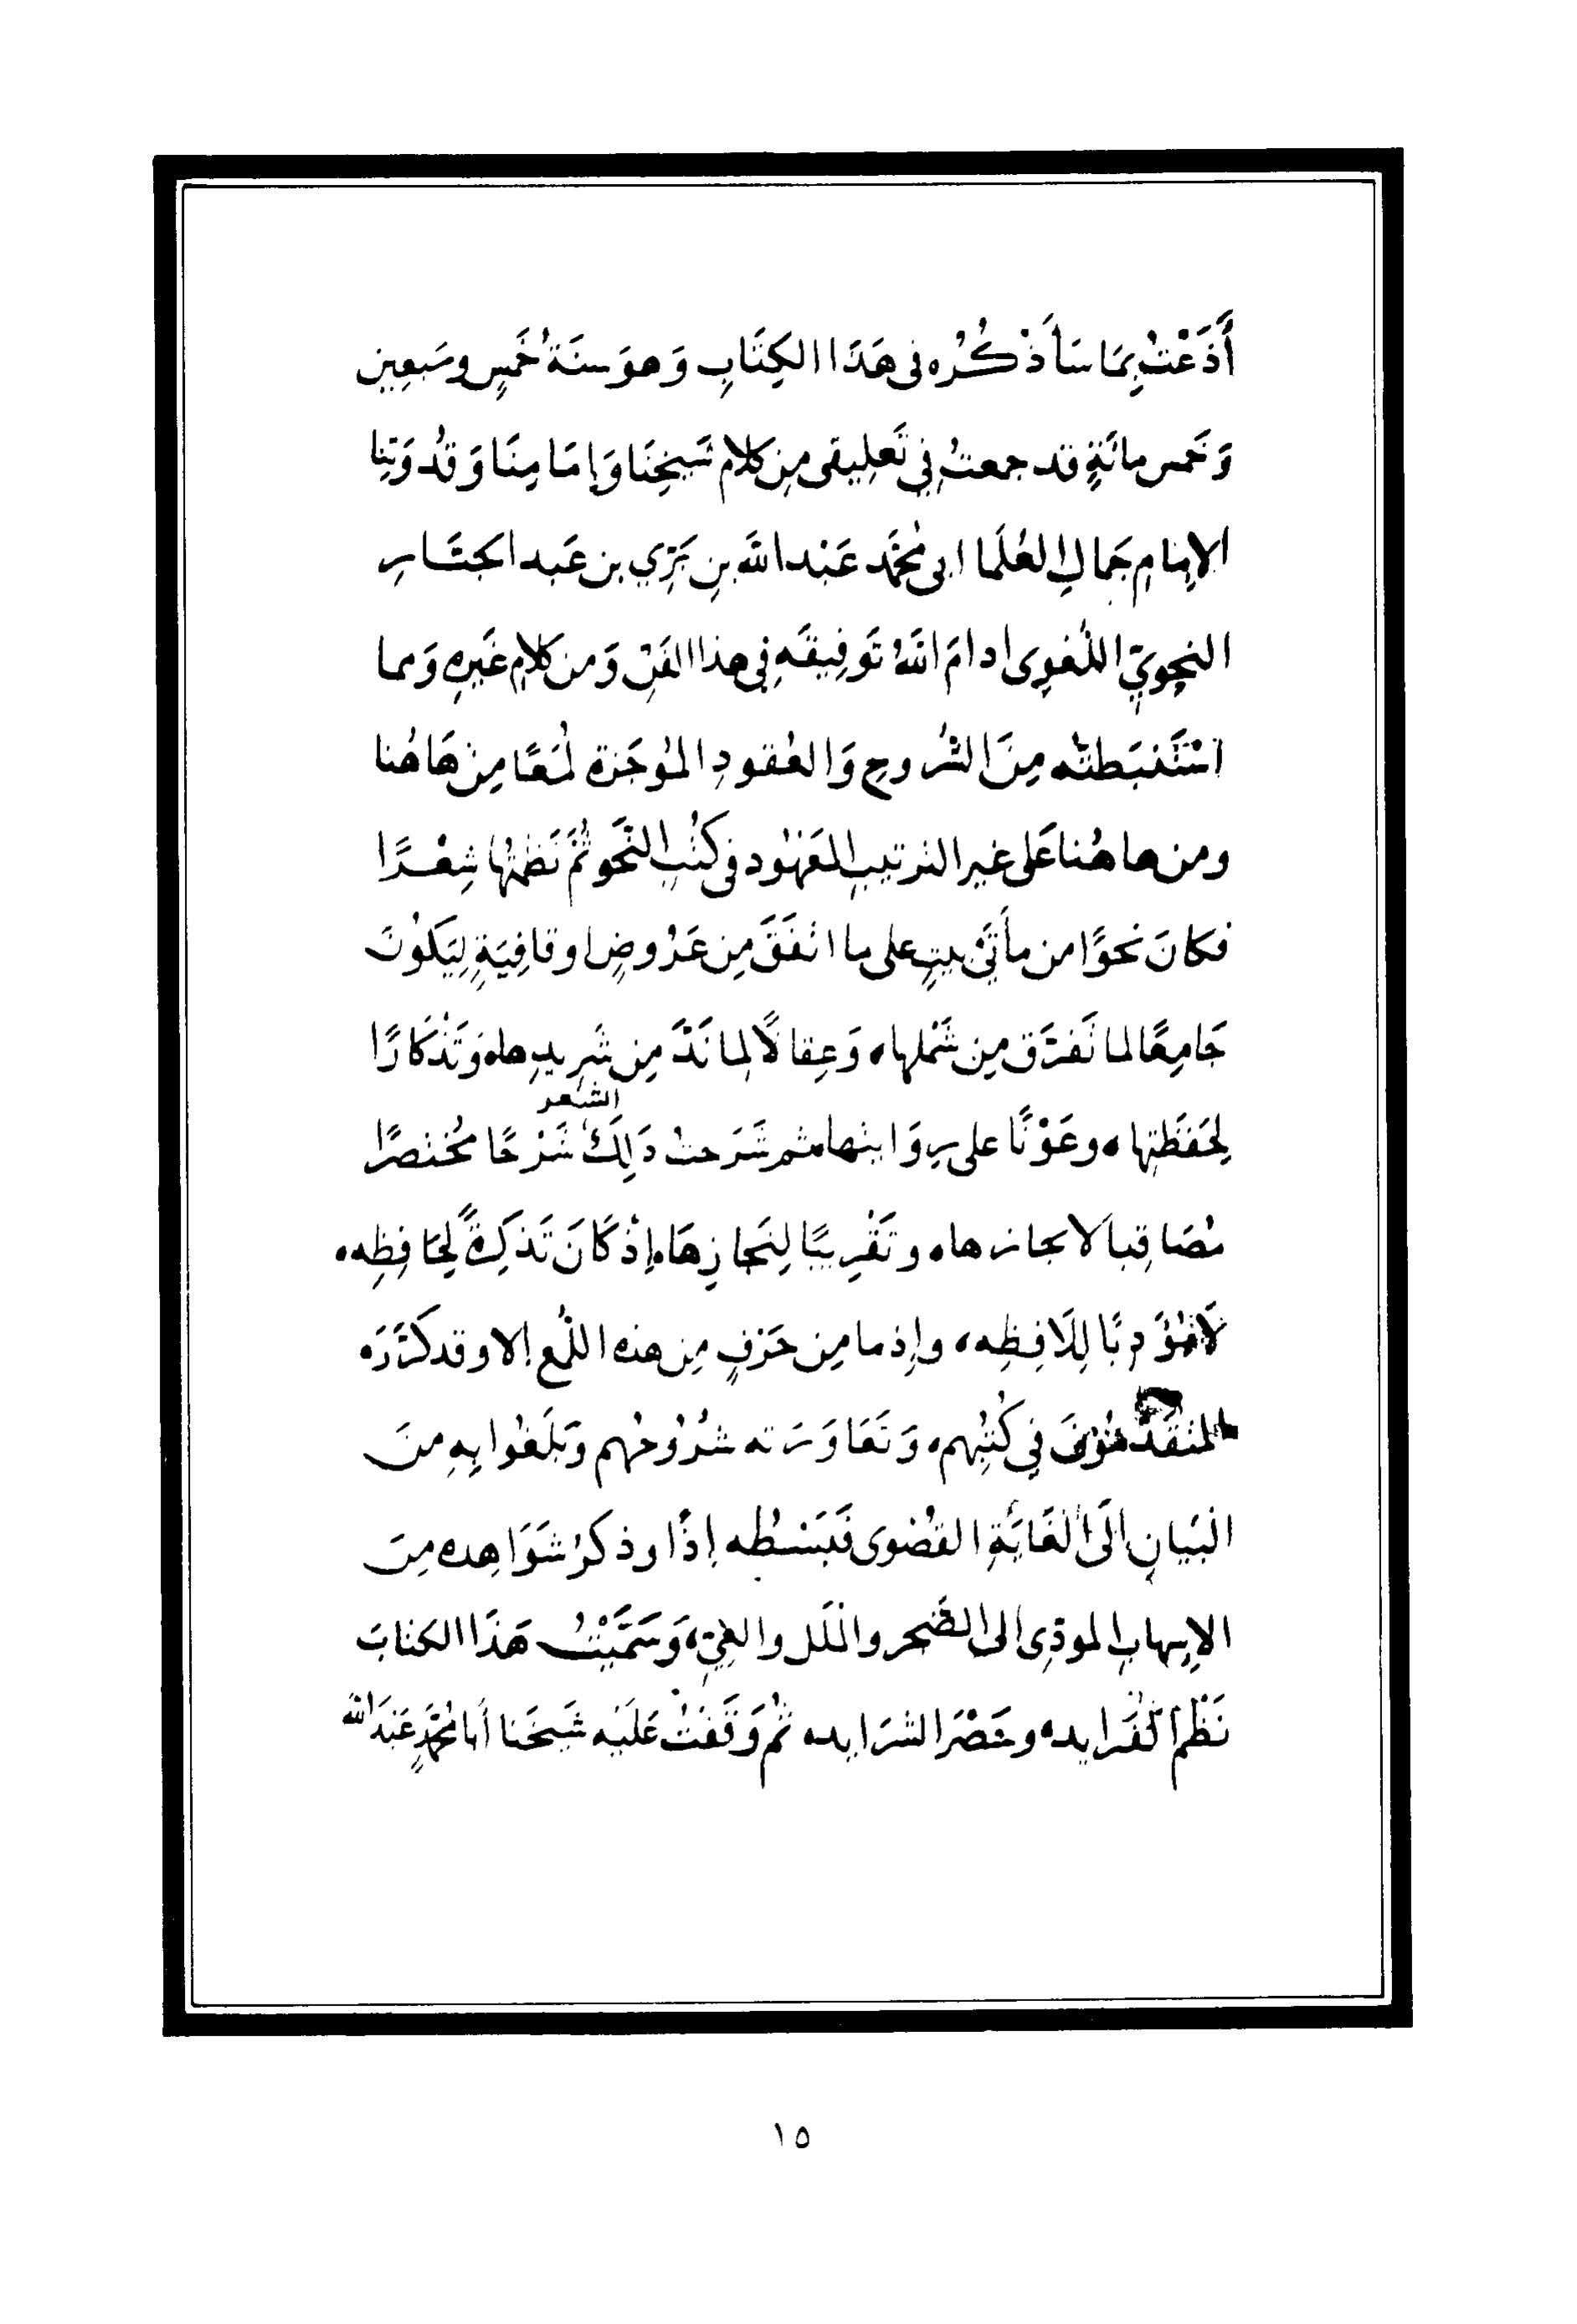 أَذَعْتُ بِمَا سَأَذْكُرُه فى هَذَا الكِتَابِ وَهوَ سنَةُ خَمسٍ وسَبعِين
وَخمس مائَةٍ قد جمعتُ فِي تَعلِيقى مِن كلام شَيخِنَا وَإمَامِنَا وَقُدوَتِنا
الإمام جَمالِ العُلَمَا ابى مُحَمَّد عَبْد الله بنِ بَرِّي بن عَبد الجبَّارِ
النحوِيّ اللُغوِى ادامَ اللَّهُ تَوفِيقَه فِي هذا الفَنّ وَمن كلامِ غَيرِهِ وَمما
اسْتَنبَطتُه مِنَ الشُروحِ وَالعُقودِ المُوجَزة لُمَعًا مِن هَاهُنا
ومن هاهُنا عَلى غير الترتيبِ المَعْهُود فى كتُبِ النَّحو ثُمَّ نَظمتُهَا شِعْرًا
فكانَ نحوًا من مأتَىْ بيتٍ على ما اتفَقَ مِن عَرُوضٍ او قافِيَةٍ لِيَكُونَ
جَامِعًا لما تَفرَّق مِن شَملها، وَعِقالًا لِما نَدَّ مِن شَرِيدِها، وَتَذْكَارًا
لِحَفَظَتِها، وعَوْنًا على رِوَايتها، ثم شَرَحتُ ذَلِكَ الشعر شَرْحًا مُختصرًا
مُصَاقِبا لايجازها، وتَقْرِيبًا لِنَجازِهَا، إِذْ كَانَ تَذكِرةً لِحَافِظِه،
لَا مُؤَدِّبًا لِلَافِظِه، وإذ ما مِن حَرْفٍ مِن هذه اللُمع إلا وقد كَرَّرَه
المتقَدّمُونَ فِي كُتُبِهم، وَتَعَاوَرَته شُرُوحُهم وَبَلَغُوا بِهِ مِنَ
البَيَانِ الَى الغَايَةِ القُصْوى فَبَسْطُه إذًا وذكرُ شَوَاهِده مِنَ
الإسهابِ المودِّى الى الضَّجر والمَلَل والعِيّ، وَسَمَّيْتُ هَذَا الكتابَ
نَظْمَ الفَرَايد، وحَصْرَ الشرَايد، ثم وَقَفتُ عَلَيْه شَيخَنا أبا مُحَمَّدٍ عَبْدَ الله
١٥